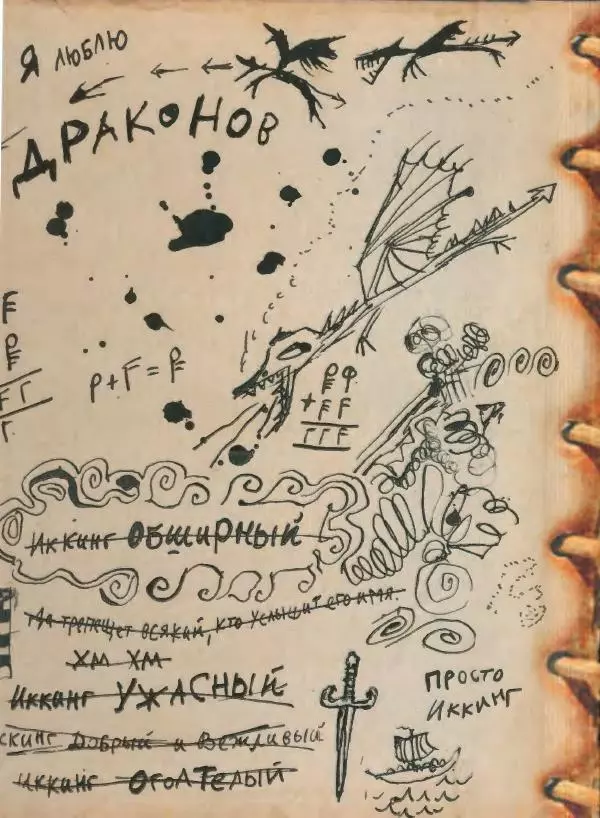 Я ЛЮБЛЮ
ДРАКОНОВ
Р+Г=
Иккинг ОБШИРНЫЙ
Да трепещет всякий, кто услышит его имя.
ХМ ХМ
Иккинг УЖАСНЫЙ
ПРОСТО
ИККИНГ
Добрый и Вежливый
Иккинг ОГОЛТЕЛЫЙ